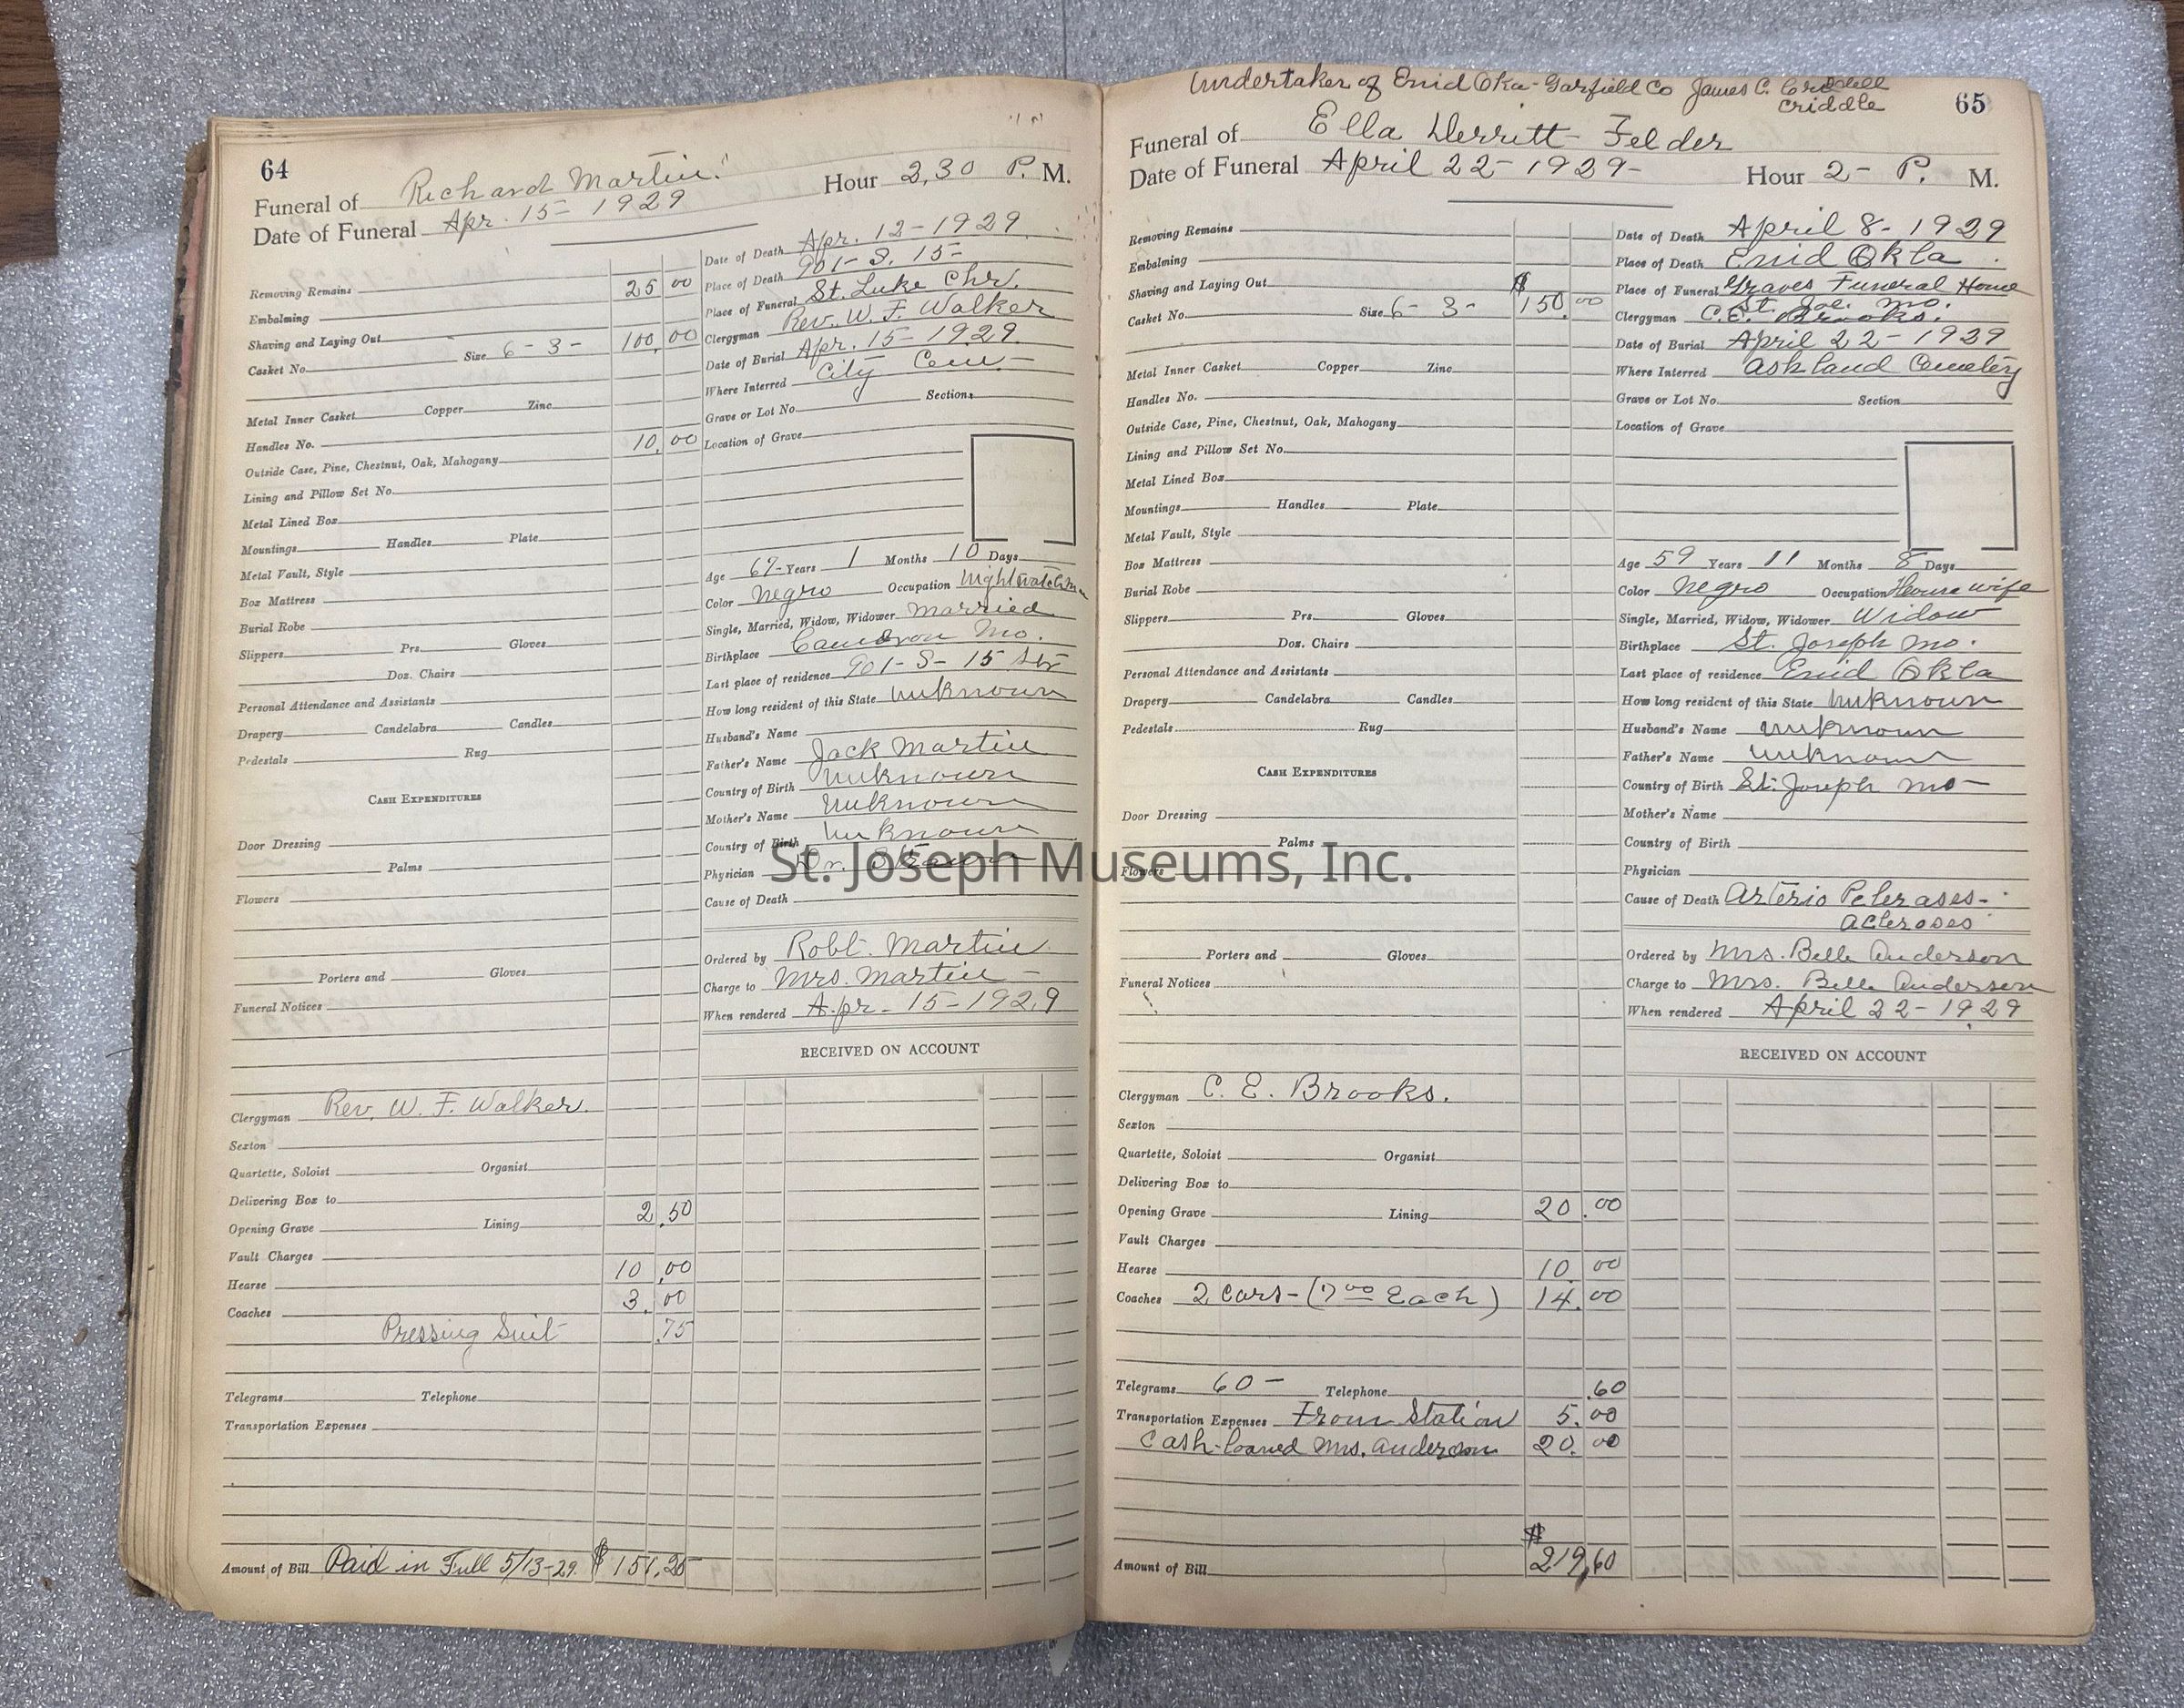 64
Funeral of Richard Martin
Date of Funeral Apr. 15- 1929 Hour 2,30 P. M.
Removing Remains 25 00
Embalming
Shaving and Laying Out 100.00
Casket No. Size 6-3-
Metal Inner Casket Copper Zinc
Handles No. 10.00
Outside Case, Pine, Chestnut, Oak, Mahogany
Lining and Pillow Set No.
Metal Lined Box
Mountings Handles Plate
Metal Vault, Style
Box Mattress
Burial Robe
Slippers Prs. Gloves
Doz. Chairs
Personal Attendance and Assistants
Drapery Candelabra Candles
Pedestals Rug
CASH EXPENDITURES
Door Dressing
Palms
Flowers
Porters and Gloves
Funeral Notices
Clergyman Rev. W. F. Walker.
Sexton
Quartette, Soloist Organist
Delivering Box to
Opening Grave Lining 2.50
Vault Charges
Hearse 10.00
Coaches 3.00
Pressing Suit .75
Telegrams Telephone
Transportation Expenses
Amount of Bill Paid in Full 5/13-29. $151.25
Date of Death Apr. 12-1929.
Place of Death 901-S. 15-
Place of Funeral St. Luke Chr.
Clergyman Rev. W. F. Walker
Date of Burial Apr. 15-1929.
Where Interred City Cem-
Grave or Lot No. Section
Location of Grave
Age Years 1 Months 10 Days
Color Negro Occupation Nightwatchman
Single, Married, Widow, Widower married
Birthplace Cameron Mo.
Last place of residence 901-S-15 Str
How long resident of this State unknown
Husband's Name
Father's Name Jack Martin
Country of Birth unknown
Mother's Name unknown
Country of Birth unknown
Physician Dr.
Cause of Death
Ordered by Robt. Martin
Charge to Mrs. Martin-
When rendered Apr- 15-1929
RECEIVED ON ACCOUNT
Undertaker of Enid Oka-Garfield Co James C.
criddle
65
Funeral of Ella Derritt-Felder
Date of Funeral April 22-1929- Hour 2- P. M.
Removing Remains
Embalming
Shaving and Laying Out
Casket No. Size 6-3- $150.00
Metal Inner Casket Copper Zinc
Handles No.
Outside Case, Pine, Chestnut, Oak, Mahogany
Lining and Pillow Set No.
Metal Lined Box
Mountings Handles Plate
Metal Vault, Style
Box Mattress
Burial Robe
Slippers Prs. Gloves
Doz. Chairs
Personal Attendance and Assistants
Drapery Candelabra Candles
Pedestals Rug
CASH EXPENDITURES
Door Dressing
Palms
Flowers
Porters and Gloves
Funeral Notices
Clergyman C. E. Brooks.
Sexton
Quartette, Soloist Organist
Delivering Box to
Opening Grave Lining 20.00
Vault Charges
Hearse 10.00
Coaches 2 cars-(7 00 Each) 14.00
Telegrams 60- Telephone .60
Transportation Expenses From Station 5.00
Cash-loaned Mrs. Anderson 20.00
Amount of Bill $219.60
Date of Death April 8-1929
Place of Death Enid Okla.
Place of Funeral Graves Funeral Home
St. Joe. Mo.
Clergyman C.E. Brooks.
Date of Burial April 22-1929
Where Interred Ashland Cemetery
Grave or Lot No. Section
Location of Grave
Age 59 Years 11 Months 8 Days
Color Negro Occupation House wife
Single, Married, Widow, Widower Widow
Birthplace St. Joseph Mo.
Last place of residence Enid Okla
How long resident of this State unknown
Husband's Name unknown
Father's Name unknown
Country of Birth St. Joseph Mo-
Mother's Name
Country of Birth
Physician
Cause of Death Arterio
Ordered by Mrs. Belle Anderson
Charge to Mrs. Belle Anderson
When rendered April 22-1929
RECEIVED ON ACCOUNT
St. Joseph Museums, Inc.